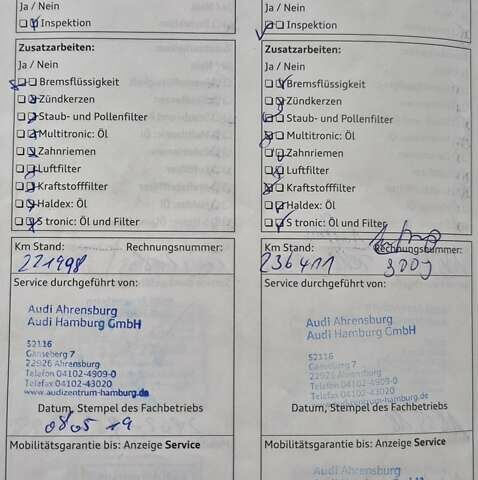 Ja / Nein
Inspektion
Zusatzarbeiten:
Ja / Nein
Bremsflüssigkeit
Zündkerzen
Staub- und Pollenfilter
Multitronic: Öl
Zahnriemen
Luftfilter
Kraftstofffilter
Haldex: Öl
S tronic: Öl und Filter
Km Stand: Rechnungsnummer:
221998
Service durchgeführt von:
Audi Ahrensburg
Audi Hamburg GmbH
52116
Gänseberg 7
22926 Ahrensburg
Telefon 04102-4909-0
Telefax 04102-43020
www.audizentrum-hamburg.de
Datum, Stempel des Fachbetriebs
08 05 19
Mobilitätsgarantie bis: Anzeige Service
Ja / Nein
Inspektion
Zusatzarbeiten:
Ja / Nein
Bremsflüssigkeit
Zündkerzen
Staub- und Pollenfilter
Multitronic: Öl
Zahnriemen
Luftfilter
Kraftstofffilter
Haldex: Öl
S tronic: Öl und Filter
Km Stand: Rechnungsnummer:
236411
Service durchgeführt von:
Audi Ahrensburg
Audi Hamburg GmbH
52116
Gänseberg 7
22926 Ahrensburg
Telefon 04102-4909-0
Telefax 04102-43020
www.audizentrum-hamburg.de
Datum, Stempel des Fachbetriebs
Mobilitätsgarantie bis: Anzeige Service
Audi Ahrensburg